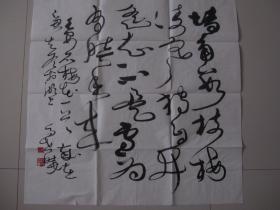 墙角数枝梅
凌寒独自开
遥知不是雪为
有暗香来
王安石梅花一首